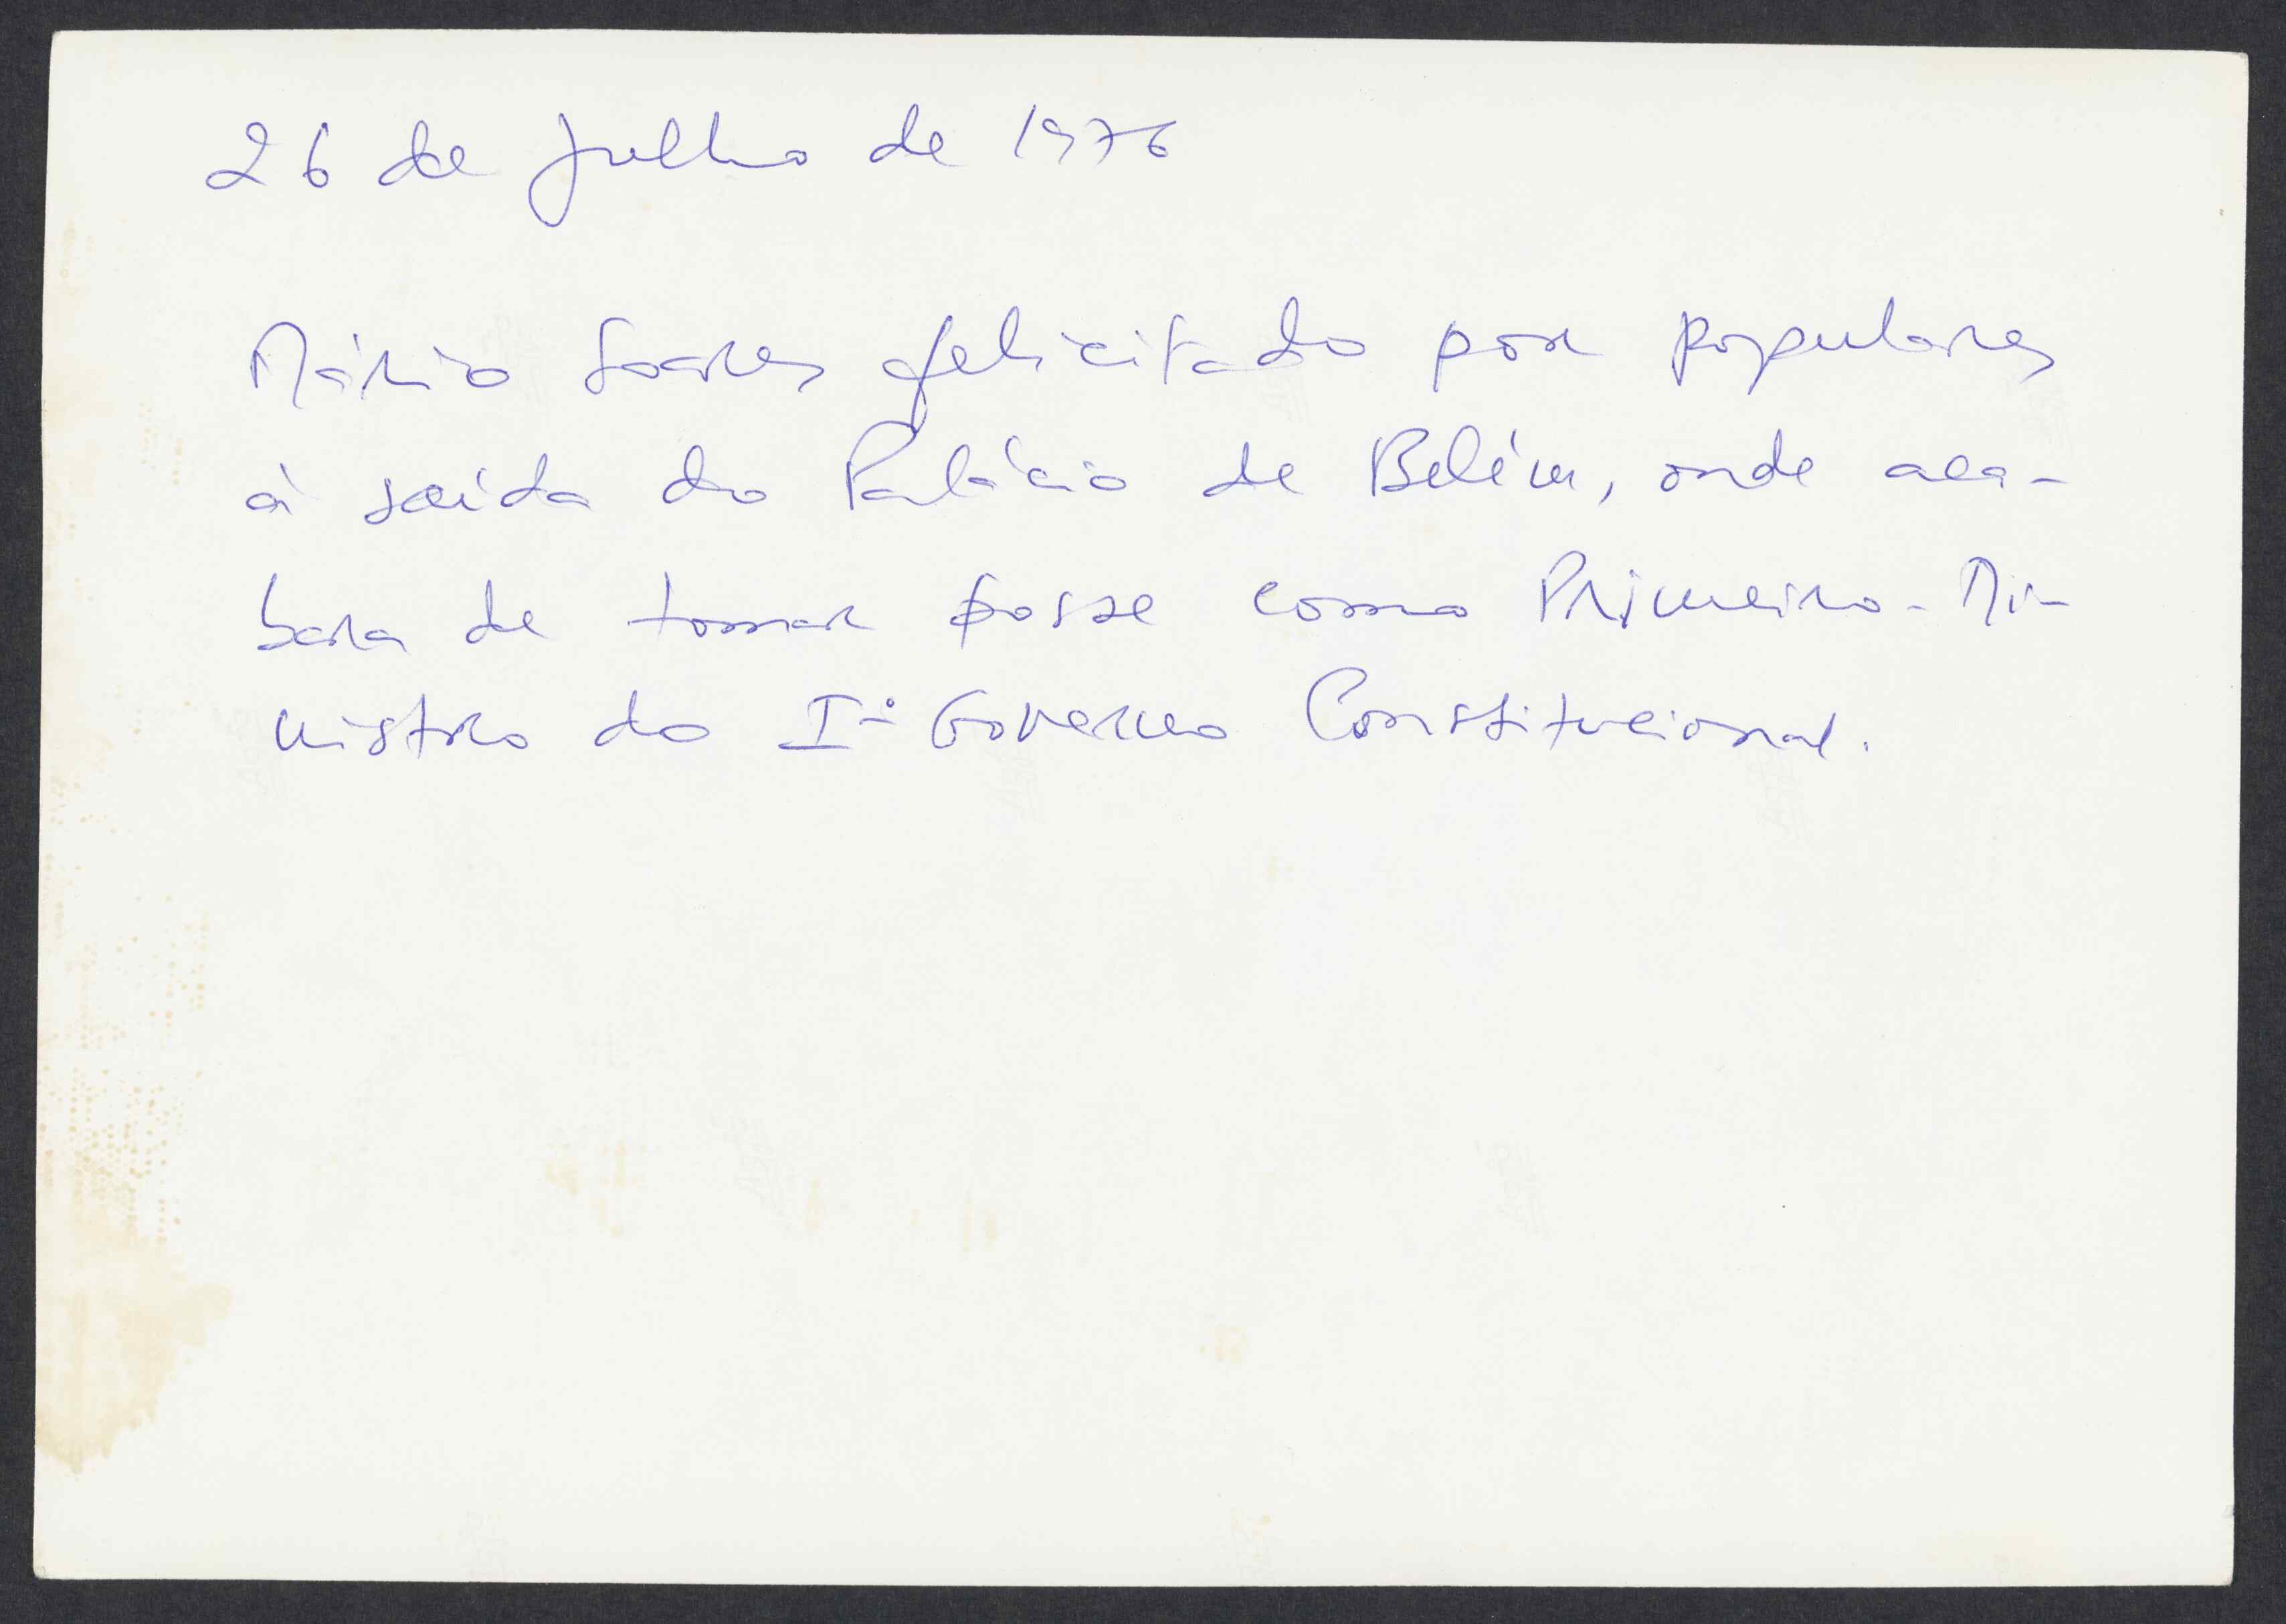 26 de Julho de 1976
Mário Soares felicitado por populares
à saída do Palácio de Belém, onde aca-
bara de tomar posse como Primeiro-Mi-
nistro do Iº Governo Constitucional.